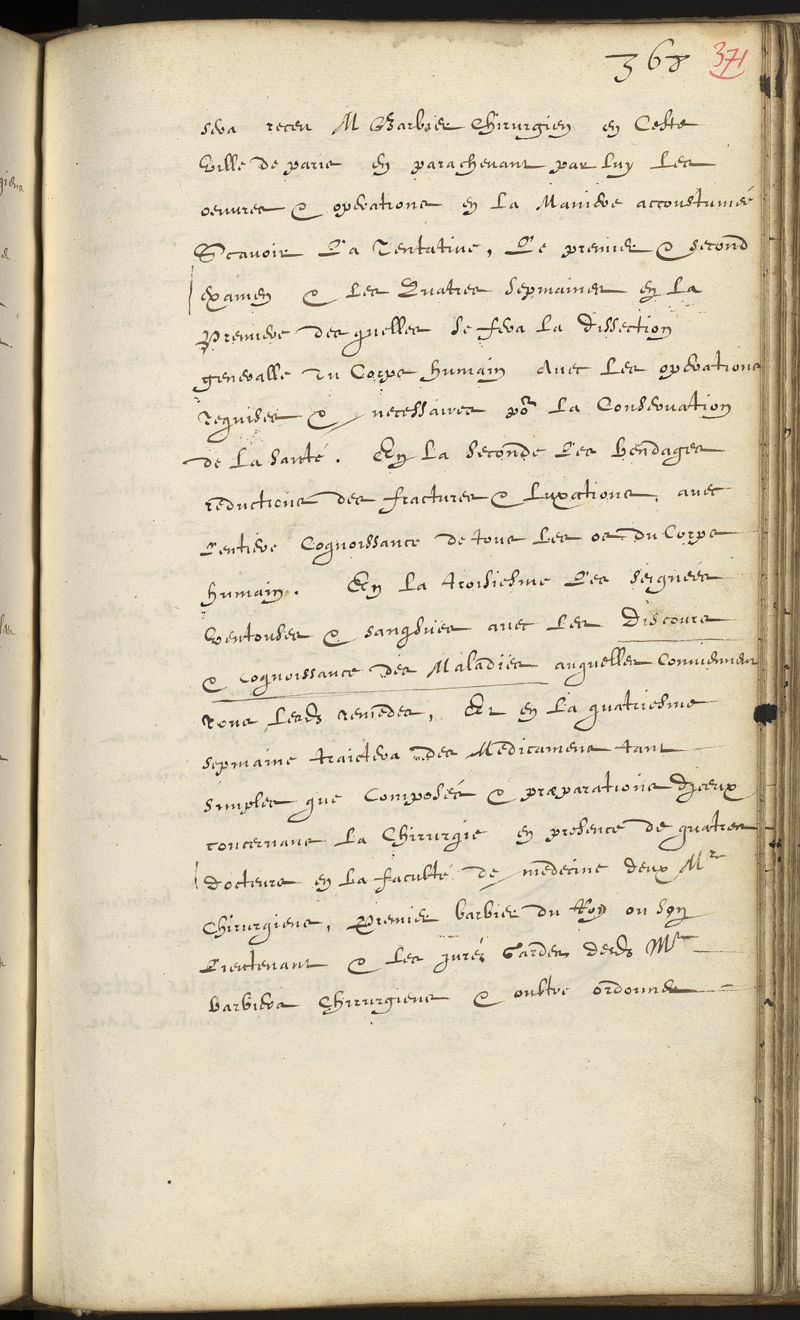 368 371
sera receu M Barbier Chirurgien en Ceste
Ville de paris en parachevant par luy Les
oeuvres & operations en La Maniere accoustumée
Scavoir La Tentative, Le premier & second
examen & Les Quatres sepmaines en La
Premiere des quelles se fera La dissection
generalle du Corps humain Avec Les operations
requises & necessaires por La Conservation
de La santé. En La seconde Les bendages
reductions des fractures & Luxations, avec
Lentiere Cognoissance de tous Les os du Corps
humain. En La troisiesme Les seignees
Ventouses & sangsues avec Les Discours
& Cognoissance des Maladies ausquelles Conviennent
Tous Lesds remedes, Et en La quatriesme
sepmaine traictera des Medicamens tant
simples que Composés & præparations diceux
concernans La Chirurgie en presence de quatres
docteurs en La faculté de medecine deux Mrs
Chirurgiens, Premier barbier du Roy ou son
Lieutenant & Les jurés Gardes desds Mrs
barbiers Chirurgiens & oultre ordonnes